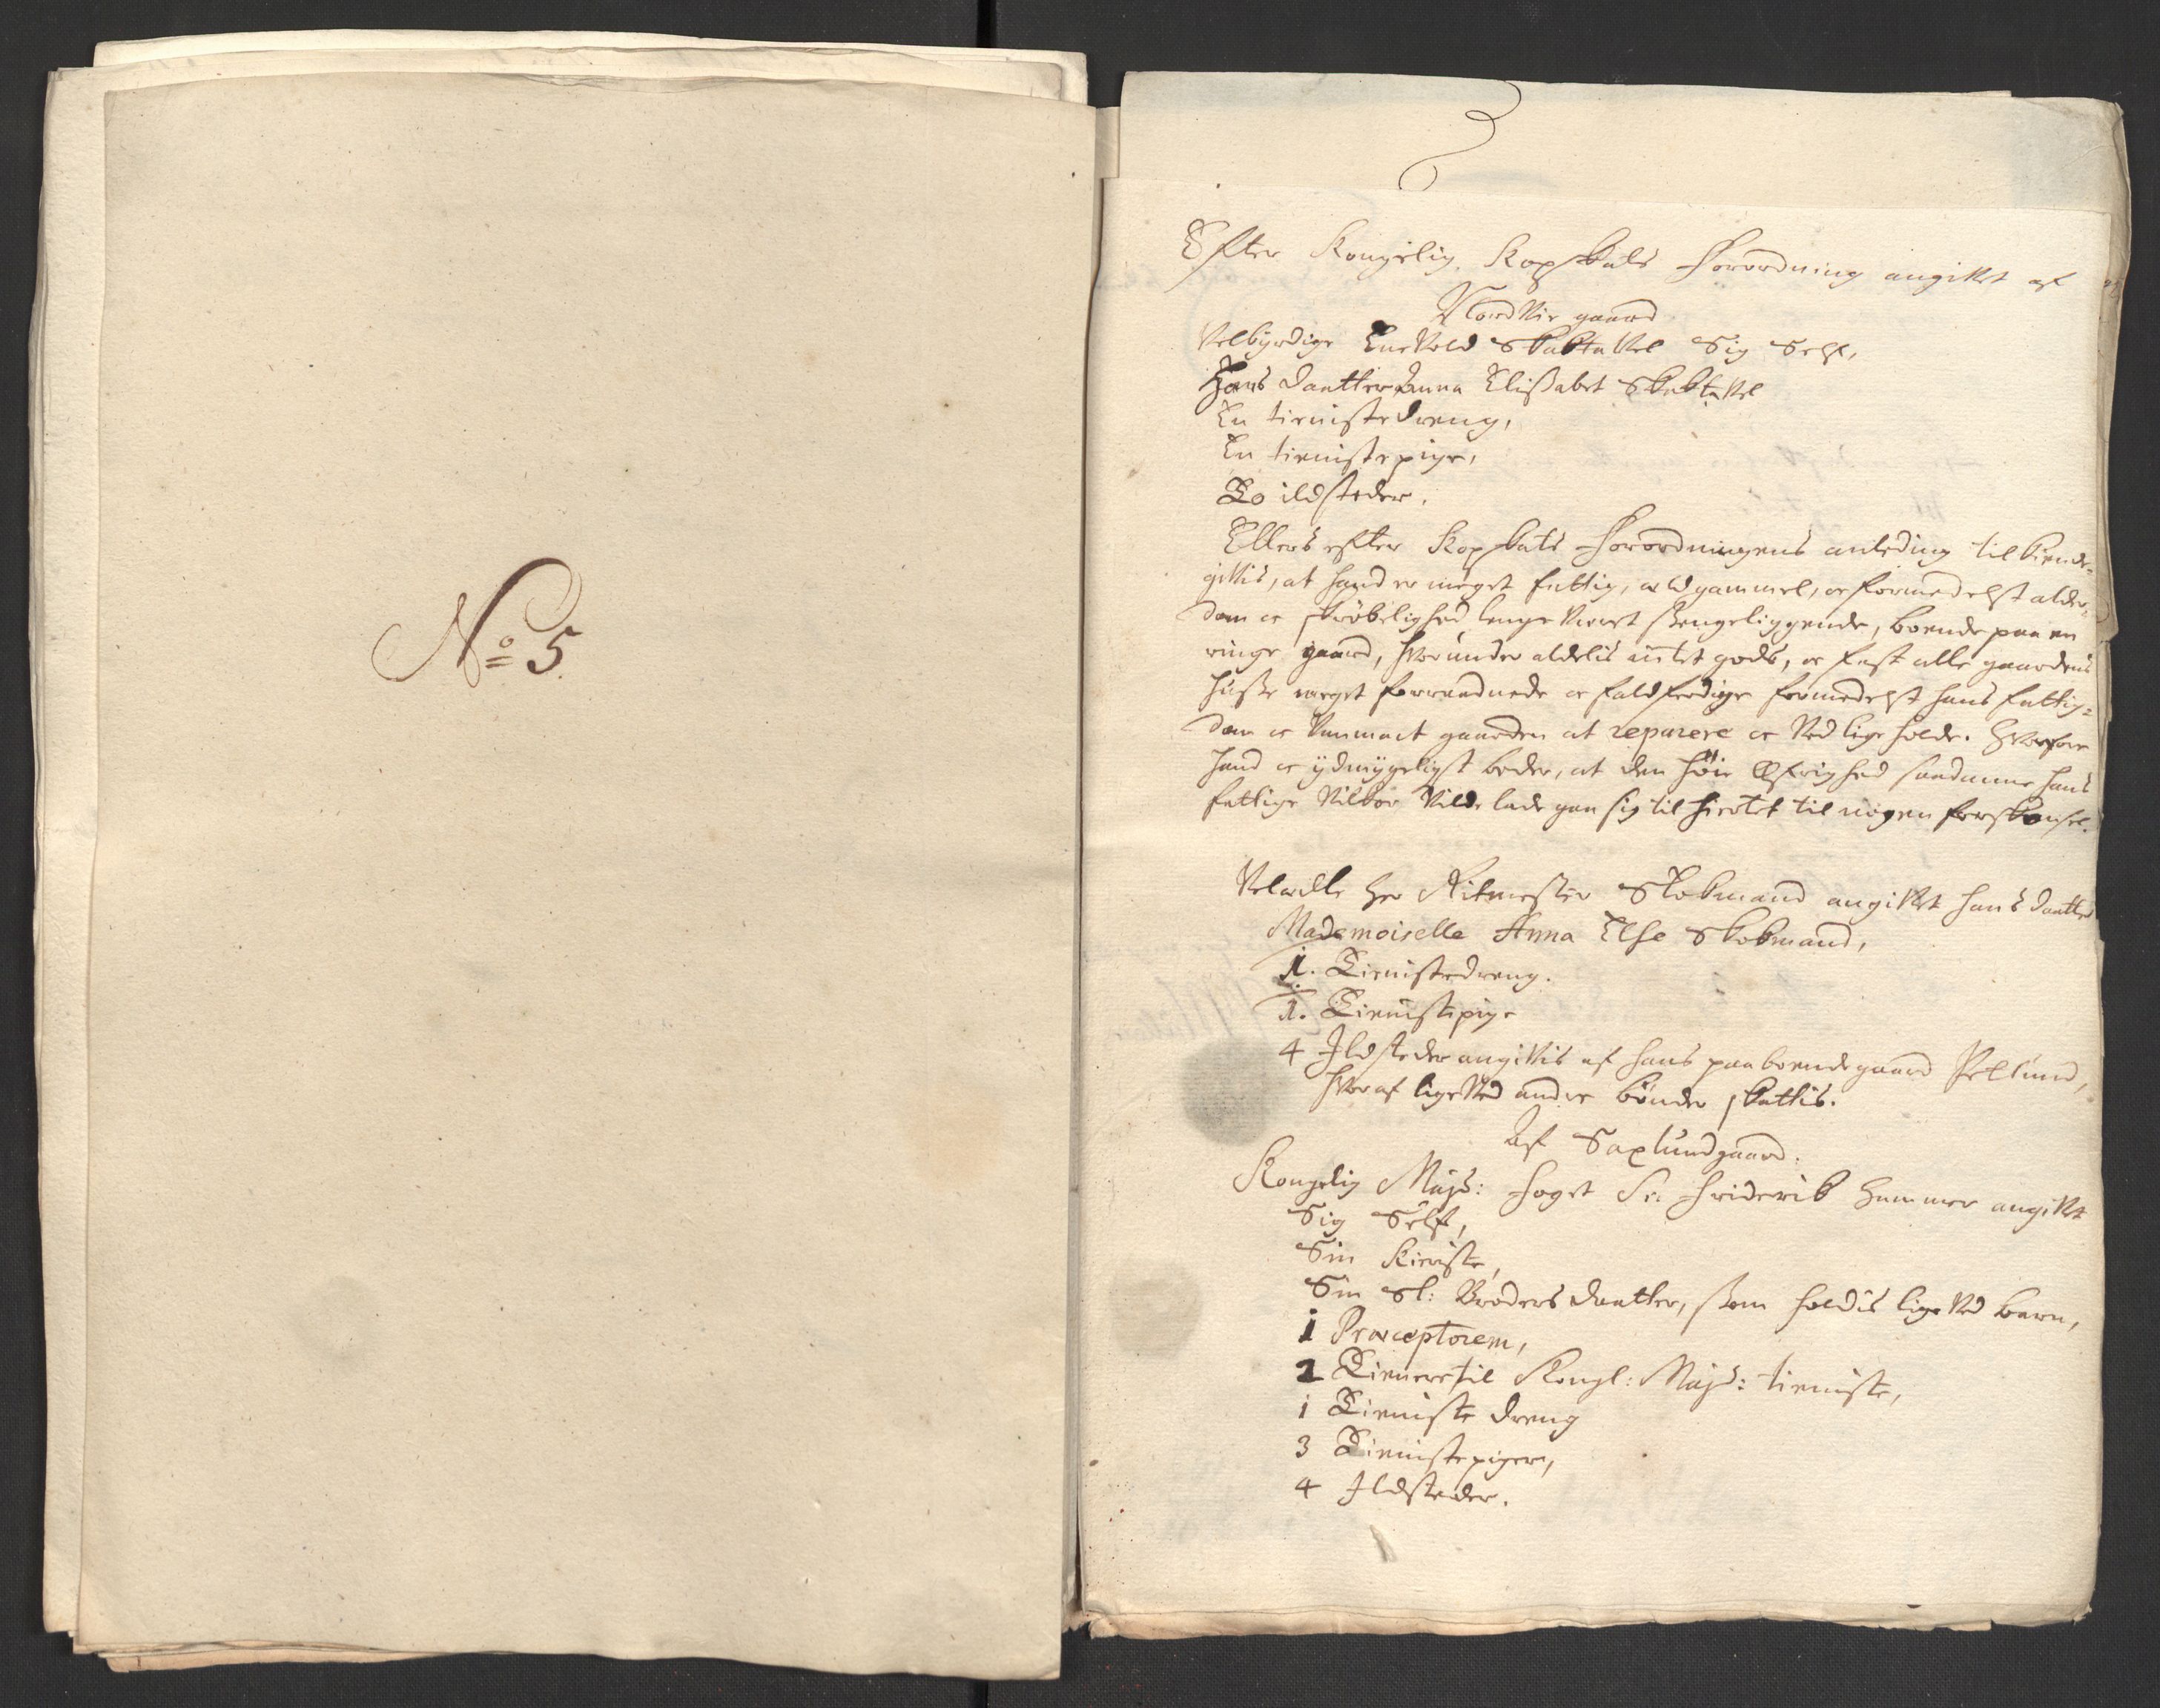 No 5.
Efter Kongelig. Kopskats forordning angiffvet af
Nordvie gaard
Velbyrdige Enevold Skaktavel Sig Self,
Hans daatter Anna Elissabet Skaktavel
En tienistedreng,
En tienistepige,
To ildsteder.
Ellers efter Kopskats forordningens anleding til kiende-
givis, at hand er meget fattig, ald gammel, oc formedelst alder-
dom oc skröbelighed lenge veret sengeliggende, boende paa en
ringe gaard, hvorunder aldelis intet gods, oc fast alle gaardens
husse meget forraadnede oc faldferdige formedelst hans fattig-
dom oc Vanmact gaarden at reparere oc ved lige holde. Hvorfore
hand oc ydmygeligst beder, at den höie Öfrighed saadanne hans
fattige vilkor vilde lade gaa sig til hiertet til nogen forskonsel.
Velædle Her Ritmester Skokmand angivet hans daatter
Mademoiselle Anna Else Skokmand,
1. Tienistedreng.
1. Tienistepige
4 Ildsteder angivis af hans paaboende gaard Pellund,
hvoraf lige ved andre bönder skattis.
Af Saxlundgaard.
Kongelig Mayts: foget Sr. friderik Hammer angivet
Sig Self,
Sin Kieriste,
Sin Sl: Broders daatter, som holdis lige ved barn,
1 Præceptorem,
2 Tienere til Kongl: Mayts: tieniste,
1 Tieniste dreng
3 Tienistepiger,
4 Ildsteder.